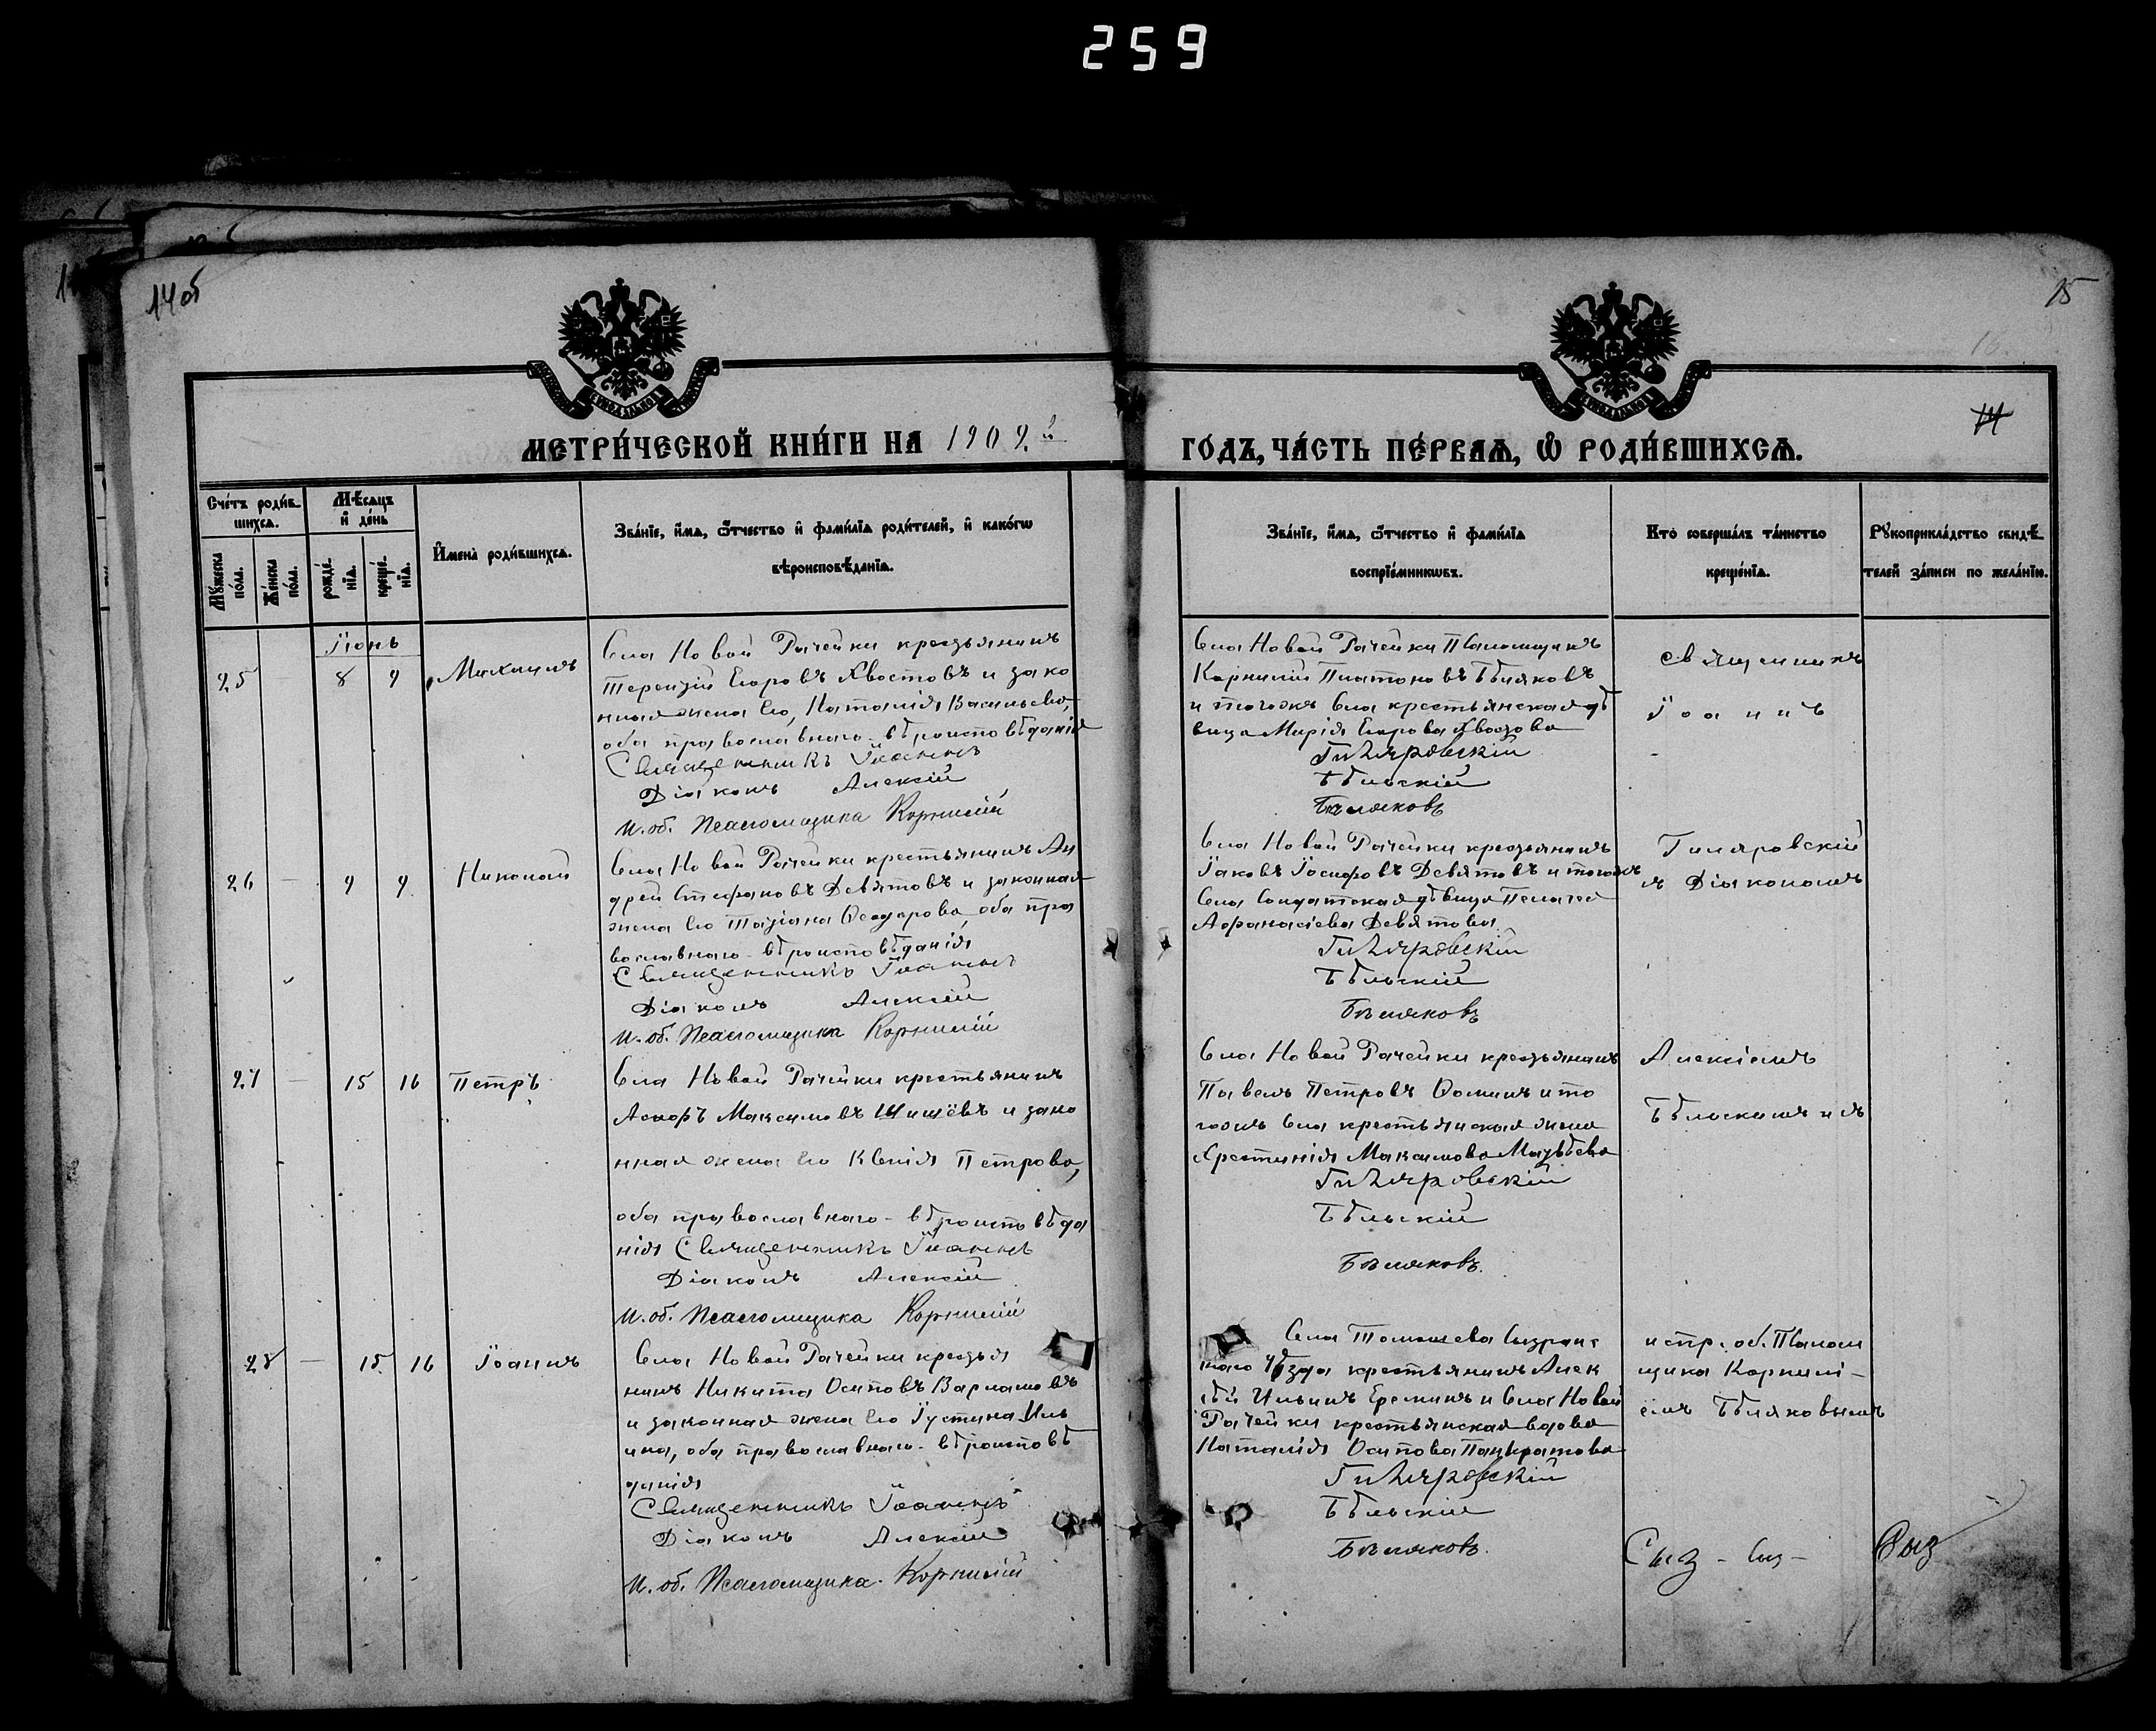 259
14об
15
МЕТРИ́ЧЕСКОЙ КНИ́ГИ НА 1909й
ГО́ДЪ, ЧА́СТЬ ПЕ́РВАѦ, Ѡ РОДИ́ВШИХСѦ.
Счетъ роди́в-
шихсѧ.
Мѣ́сѧцъ
и де́нь
Мꙋжеска
по́ла.
Же́нска
по́ла.
рожде́-
нїѧ.
креще́-
нїѧ.
Имена̀ роди́вшихсѧ.
Зва́нїе, и́мѧ, ѻ́тчество и фами́лїѧ роди́телей, и како́гѡ
вѣроисповѣ́данїѧ.
Зва́нїе, и́мѧ, ѻ́тчество и фами́лїѧ
воспрїе́мникѡвъ.
Кто̀ соверша́лъ та́инство
креще́нїѧ.
Рꙋкоприкла́дство свидѣ́-
телей за́писи по жела́нїю.
Іюнь
25 — 8 9 Михаилъ
Села Новой Рачейки крестьянинъ
Терентій Егоровъ Хвостовъ и зако
нная жена его, Наталія Васильева,
оба православнаго-вѣроисповѣданія
Священникъ Іоаннъ
Діаконъ Алексій
И.об. Псаломщика Корнилій
Села Новой Рачейки Псаломщикъ
Корнилій Платоновъ Бѣляковъ
и тогожъ села крестьянская дѣ
вица Марія Егорова Хвостова
Гиляровскій
Бѣльскій
Бѣляковъ
Священникъ
Іоаннъ
26 — 9 9 Николай
Села Новой Рачейки крестьянинъ Ан
дрей Стефановъ Девятовъ и законная
жена его Татіана Ѳеодорова, оба пра
вославнаго-вѣроисповѣданія
Священникъ Іоаннъ
Діаконъ Алексій
И.об. Псаломщика Корнилій
Села Новой Рачейки крестьянинъ
Іаковъ Іосифовъ Девятовъ и тогожъ
села солдатская дѣвица Пелагея
Афанасіева Девятова
Гиляровскій
Бѣльскій
Бѣляковъ
Гиляровскій
съ Діакономъ
27 — 15 16 Петръ
Села Новой Рачейки крестьянинъ
Іосифъ Максимовъ Шишёвъ и зако
нная жена его Ксенія Петрова,
оба православнаго-вѣроисповѣда
нія Священникъ Іоаннъ
Діаконъ Алексій
И.об. Псаломщика Корнилій
Села Новой Рачейки крестьянинъ
Павелъ Петровъ Ѳоминъ и то
гожъ села крестьянская жена
Христинія Максимова
Гиляровскій
Бѣльскій
Бѣляковъ.
Алексіемъ
Бѣльскимъ и съ
28 — 15 16 Іоаннъ
Села Новой Рачейки крестья
нинъ Никита Осиповъ Варламовъ
и законная жена его Іустина Иль
ина, оба православнаго-вѣроисповѣ
данія
Священникъ Іоаннъ
Діаконъ Алексій
И.об. Псаломщика Корнилій
Села Томышева Сызранс
каго уѣзда крестьянинъ Алек
сѣй Ильинъ Ереминъ и села Новой
Рачейки крестьянская вдова
Наталія Осипова Панкратова
Гиляровскій
Бѣльскій
Бѣляковъ.
испр. об. Псалом
щика Корнилі-
емъ Бѣляковымъ
Сыз - Сыз -
Сыз